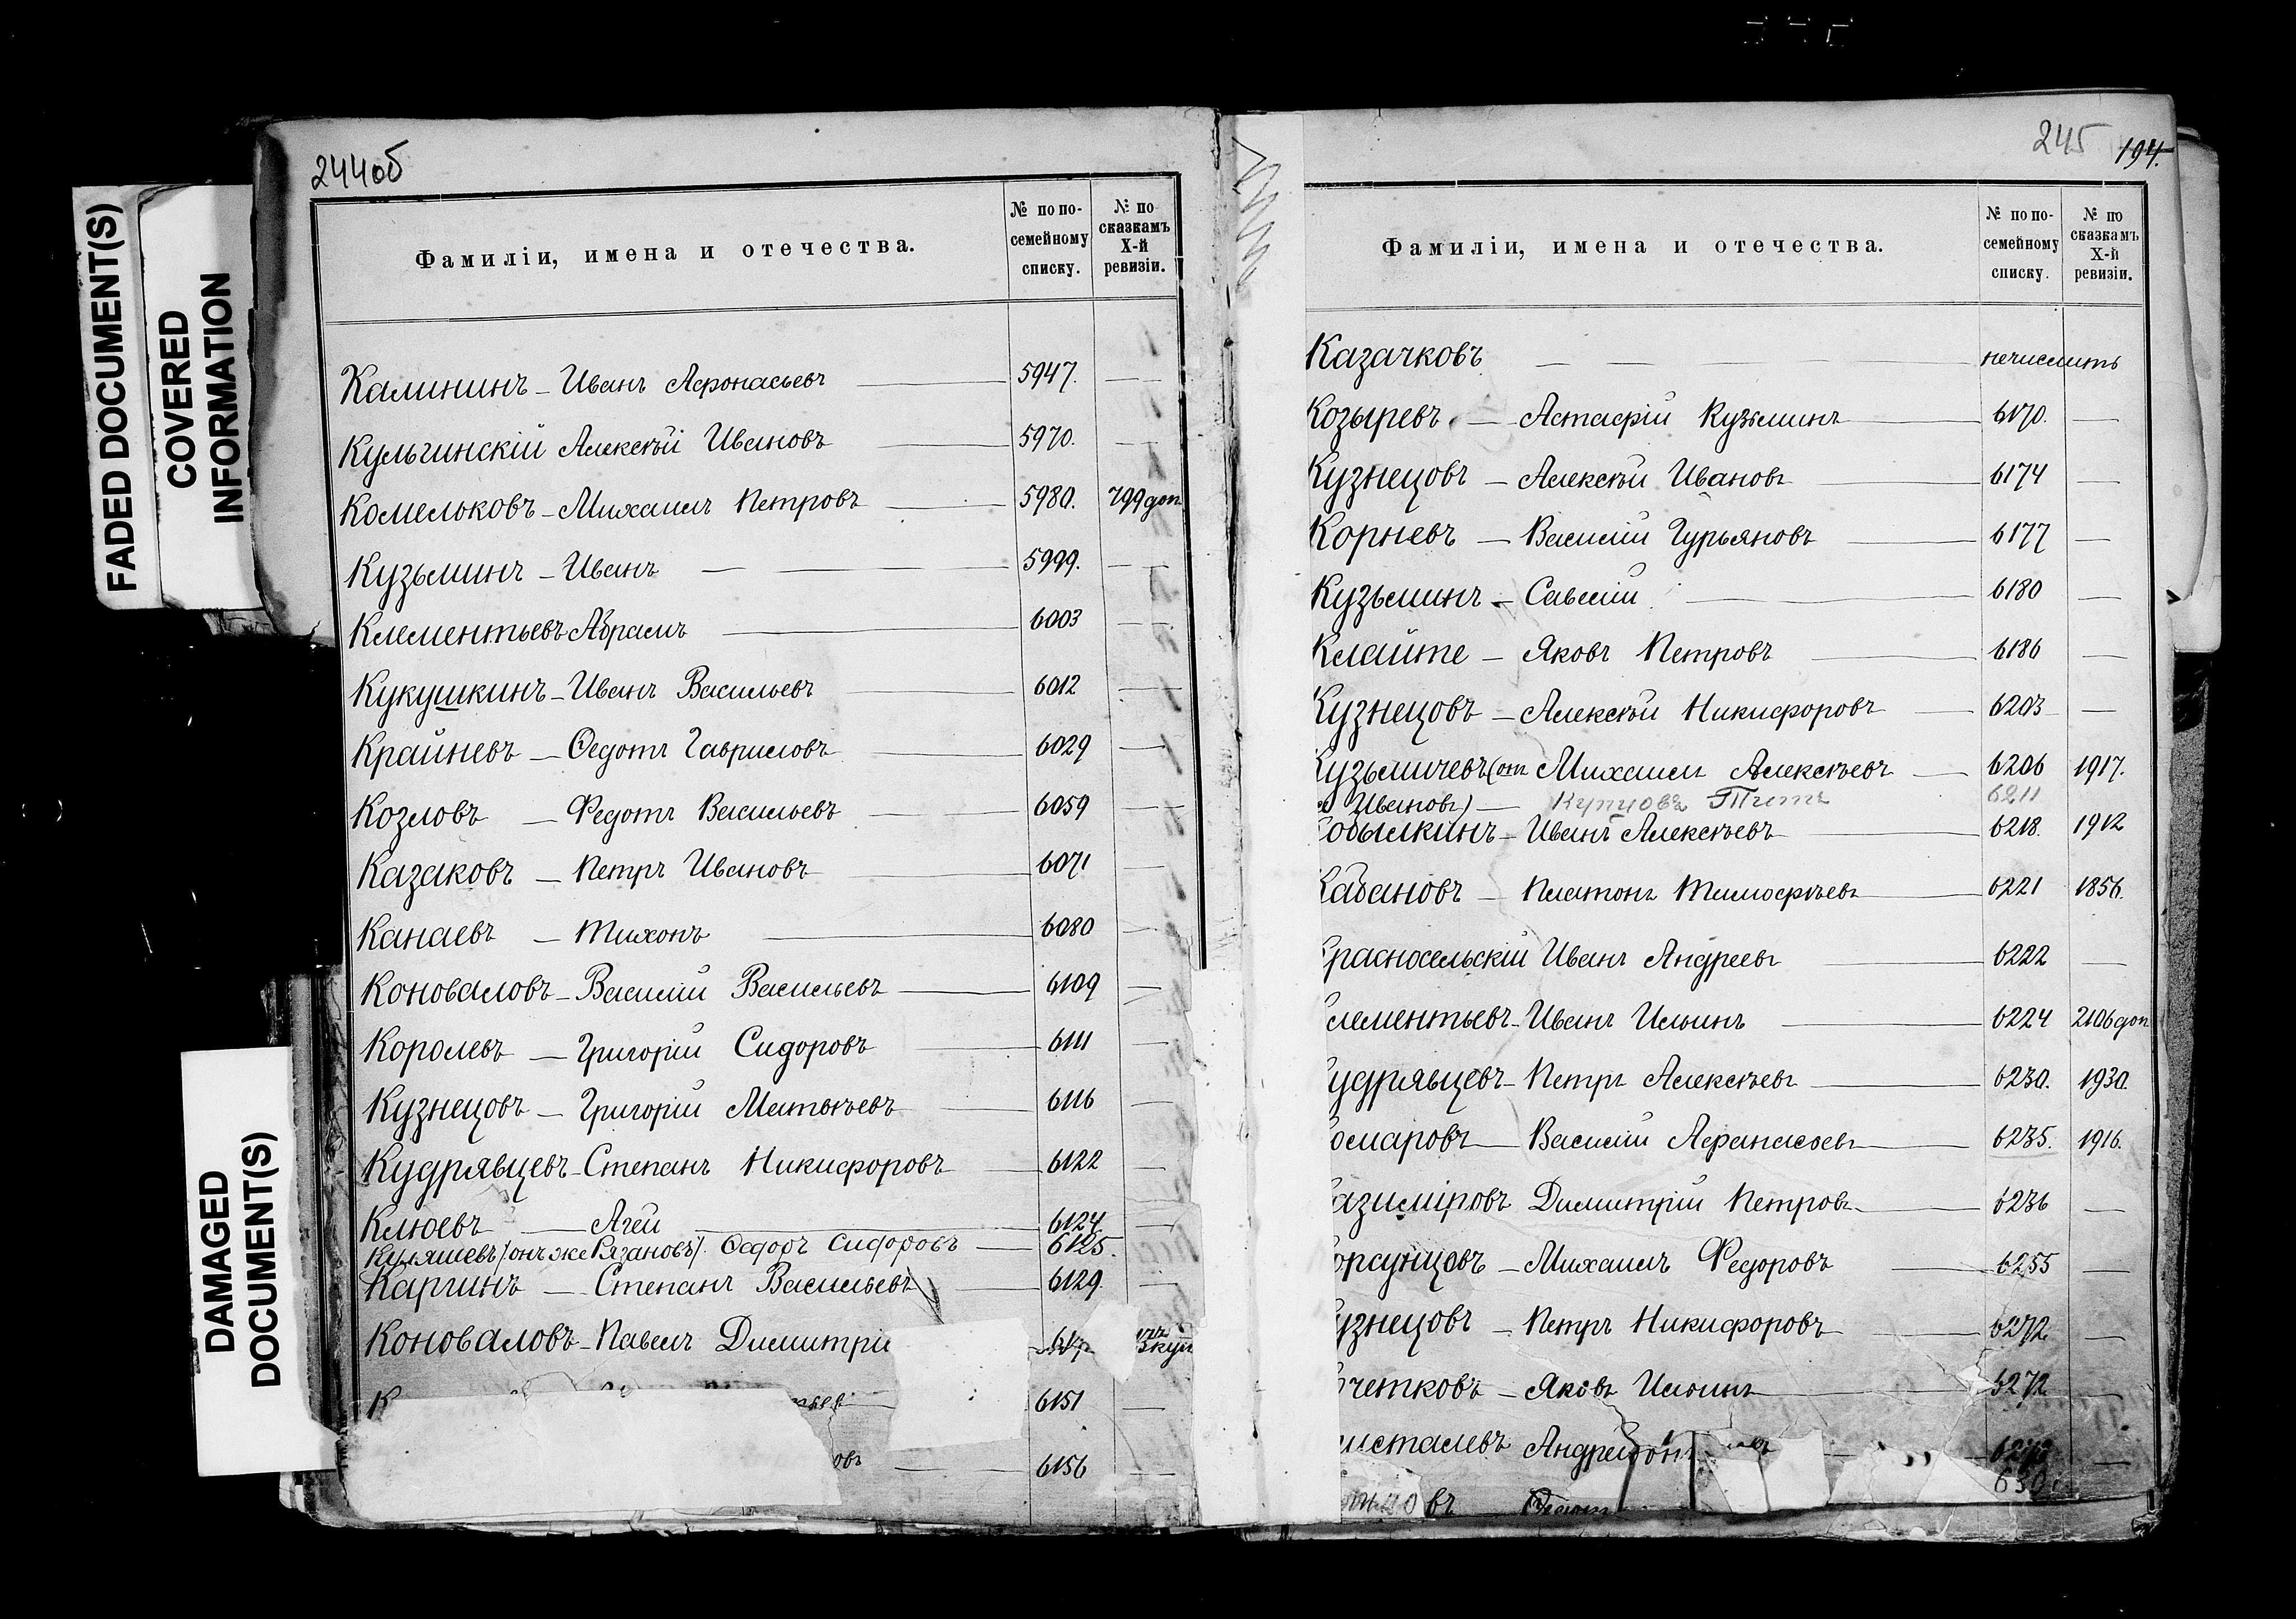 FADED DOCUMENT(S)
COVERED INFORMATION
DAMAGED DOCUMENT(S)
244об
Фамиліи, имена и отечества.
№ по по-
семейному
списку.
№ по
сказкамъ
X-й
ревизіи.
Калининъ - Иванъ Афонасьевъ 5947. —
Кульчинскій Алексѣй Ивановъ 5970. —
Комельковъ - Михаилъ Петровъ 5980. 799 доп
Кузьминъ - Иванъ — 5999. —
Клементьевъ Абрамъ 6003 —
Кукушкинъ - Иванъ Васильевъ 6012 —
Крайневъ - Ѳедотъ Гавриловъ 6029 —
Козловъ - Федотъ Васильевъ 6059 —
Казаковъ - Петръ Ивановъ 6071 —
Канаевъ - Тихонъ 6080 —
Коноваловъ - Василій Васильевъ 6109 —
Королевъ - Григорій Сидоровъ 6111 —
Кузнецовъ - Григорій Матвѣевъ 6116 —
Кудрявцевъ - Степанъ Никифоровъ 6122 —
Клюевъ - Агей 6124 —
Куляшевъ (онъ же Рязановъ). Ѳедоръ Сидоровъ — 6125.
Каргинъ - Степанъ Васильевъ 6129. —
Коноваловъ - Павелъ Димитрі
К 6151 —
овъ — 6156 —
245 194.
Фамиліи, имена и отечества.
№ по по-
семейному
списку.
№ по
сказкамъ
X-й
ревизіи.
Казачковъ — — нечислитъ
Козыревъ - Астафій Кузьминъ 6170. —
Кузнецовъ - Алексѣй Ивановъ 6174 —
Корневъ - Василій Гурьяновъ 6177 —
Кузьминъ - Савелій 6180 —
Клайте - Яковъ Петровъ 6186 —
Кузнецовъ - Алексѣй Никифоровъ 6203 —
узьмичевъ (он Михаилъ Алексѣевъ 6206 1917.
Ивановъ) — Купцовъ Титъ 6211
обылкинъ - Иванъ Алексѣевъ 6218. 1912
абановъ - Платонъ Тимофѣевъ 6221 1856.
расносельскій Иванъ Андреевъ 6222 —
лементьевъ - Иванъ Ильинъ 6224 2106 доп
удрявцевъ - Петръ Алексѣевъ 6230. 1930.
омаровъ - Василій Афанасьевъ 6235. 1916.
азиміровъ Димитрій Петровъ 6236 —
орсунцовъ - Михаилъ Федоровъ 6255 —
узнецовъ - Петръ Никифоровъ 6272 —
четковъ - Яковъ Ильинъ 6272 —
исталевъ
овъ